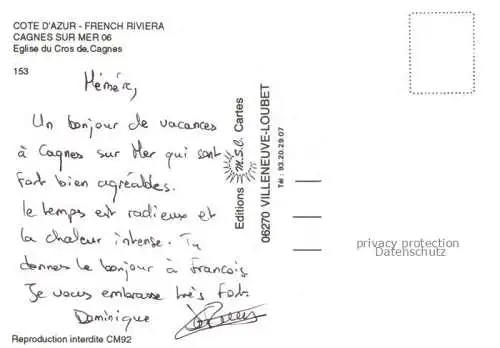 COTE D'AZUR - FRENCH RIVIERA
CAGNES SUR MER 06
Eglise du Cros de Cagnes
153
Mémère,
Un bonjour de vacances
à Cagnes sur Mer qui sont
fort bien agréables.
le temps est radieux et
la chaleur intense. Tu
donnes le bonjour à François
Je vous embrasse très fort.
Dominique
Reproduction interdite CM92
Editions M.S.C. Cartes
06270 VILLENEUVE-LOUBET
Tél : 93.20.29.07
privacy protection
Datenschutz